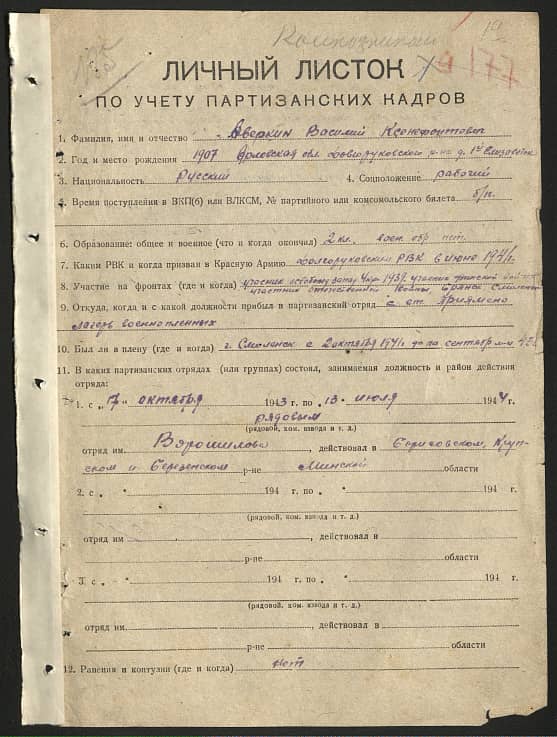 135
19
ЛИЧНЫЙ ЛИСТОК
ПО УЧЕТУ ПАРТИЗАНСКИХ КАДРОВ
1. Фамилия, имя и отчество Аверкин Василий Ксенофонтович
2. Год и место рождения 1907 Орловская обл. Должоруковский р-на д.
3. Национальность Русский 4. Соцположение рабочий
5. Время поступления в ВКП(б) или ВЛКСМ, № партийного или комсомольского билета б/п.
6. Образование: общее и военное (что и когда окончил) 2 кл. воен. обр нет.
7. Каким РВК и когда призван в Красную Армию Долгоруковским РВК в июне 1941г.
8. Участие на фронтах (где и когда) участник 1939. участник финской
участник отечественной войны
9. Откуда, когда и с какой должности прибыл в партизанский отряд с ст. Приямено
лагерь военнопленных
10. Был ли в плену (где и когда) г. Смоленск с 2 октября 1941г до сентябр
11. В каких партизанских отрядах (или группах) состоял, занимаемая должность и район действия
отряда:
1. с „7" октября 1943 г. по „13" июля 1944 г.
рядовым
(рядовой, ком. взвода и т. д.)
отряд им. Ворошилова, действовал в Борисовском, Круп-
ском и Березенском р-не Минской области
2. с „ " 194 г. по „ " 194 г.
(рядовой, ком. взвода и т. д.)
отряд им , действовал в
р-не области
3. с „ " 194 г. по „ " 194 г.
(рядовой, ком. взвода и т. д.)
отряд им , действовал в
р-не области
12. Ранения и контузии (где и когда) нет